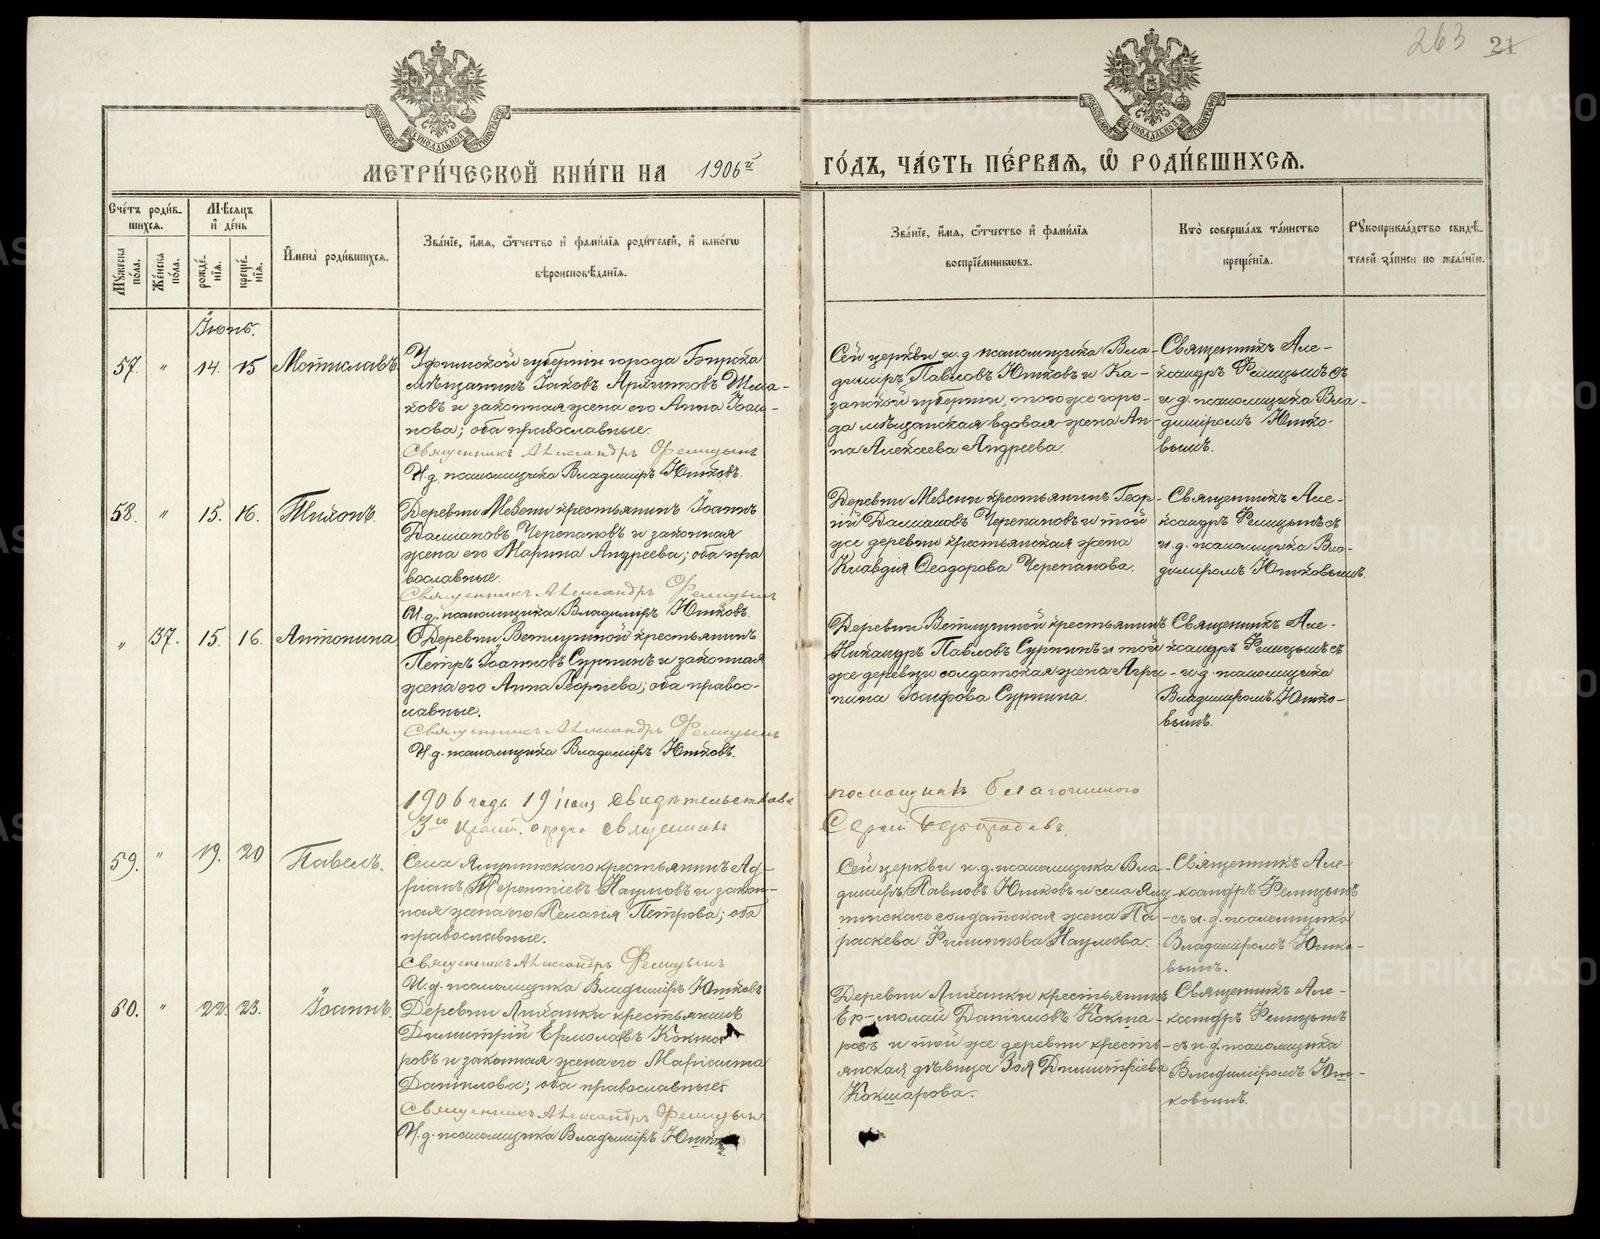 263 21
МЕТРИ́ЧЕСКОЙ КНИ́ГИ НА 1906й ГО́ДЪ, ЧА́СТЬ ПЕ́РВАЯ, Ѡ РОДИ́ВШИХСЯ.
Сче́тъ роди́в-
шихся.
Му́жеска по́ла.
Же́нска по́ла.
Мѣ́сяцъ
и де́нь
рожде́-
нїя.
креще́-
нїя.
Имена̀ роди́вшихся.
Зва́нїе, и́мя, ѻ́тчество и фами́лїя роди́телей, и како́гѡ
вѣроисповѣ́данїя.
Зва́нїе, и́мя, ѻ́тчество и фами́лїя
воспрїе́мниковъ.
Кто̀ соверша́лъ та́инство
креще́нїя.
Рукоприкла́дство свидѣ́-
телей за́писи по жела́нїю.
Іюнь.
57. " 14. 15 Мстиславъ.
Уфимской губерніи города Бирска
мѣщанинъ Іаковъ Архиповъ Шма-
ковъ и законная жена его Анна Іоан-
нова; оба православные.
Священникъ Александръ Фелицынъ
И.д. псаломщика Владиміръ Ютковъ.
Сей церкви и.д. псаломщика Вла-
диміръ Павловъ Ютковъ и Ка-
занской губерніи, того же горо-
да мѣщанская вдовая жена Ан-
на Алексѣева Андреева.
Священникъ Але-
ксандръ Фелицынъ съ
и.д. псаломщика Вла-
диміромъ Ютко-
вымъ.
58. " 15. 16. Тихонъ.
Деревни Мезени крестьянинъ Іоаннъ
Далматовъ Черепановъ и законная
жена его Марина Андреева; оба пра
вославные.
Священникъ Александръ Фелицынъ
И.д. псаломщика Владиміръ Ютковъ.
Деревни Мезени крестьянинъ Геор-
гій Далматовъ Черепановъ и той
же деревни крестьянская жена
Клавдія Ѳеодорова Черепанова.
Священникъ Але-
ксандръ Фелицынъ съ
и.д. псаломщика Вла-
диміромъ Ютковымъ.
" 37. 15. 16. Антонина
Деревни Ветлугиной крестьянинъ
Петръ Іоанновъ Сурнинъ и законная
жена его Анна Георгіева; оба правос-
лавные.
Священникъ Александръ Фелицынъ
И.д. псаломщика Владиміръ Ютковъ.
Деревни Ветлугиной крестьянинъ
Никандръ Павловъ Сурнинъ и той
же деревни солдатская жена Агри-
пина Іосифова Сурнина.
Священникъ Але-
ксандръ Фелицынъ съ
и.д. псаломщика
Владиміромъ Ютко-
вымъ.
1906 года 19 іюня свидѣтельствовалъ помощникъ благочиннаго
3го округа священникъ Сергій
59. " 19. 20 Павелъ.
Села крестьянинъ Ад-
ріанъ Терентіевъ Наумовъ и закон-
ная жена его Пелагія Петрова; оба
православные.
Священникъ Александръ Фелицынъ
И.д. псаломщика Владиміръ Ютковъ
Сей церкви и.д. псаломщика Вла-
диміръ Павловъ Ютковъ и села
солдатская жена Па
раскева Филиппова Наумова.
Священникъ Але-
ксандръ Фелицынъ
съ и.д. псаломщика
Владиміромъ Ютко-
вымъ.
60. " 22. 23. Іоаннъ.
Деревни крестьянинъ
Димитрій Ермолаевъ Кокша
ровъ и законная жена его
Данилова; оба православные.
Священникъ Александръ Фелицынъ
И.д. псаломщика Владиміръ
Деревни крестьянинъ
Ермолай Даніиловъ Кокша-
ровъ и той же деревни кресть-
янская дѣвица Зоя Димитріева
Кокшарова.
Священникъ Але-
ксандръ Фелицынъ
съ и.д. псаломщика
Владиміромъ Ют-
ковымъ.